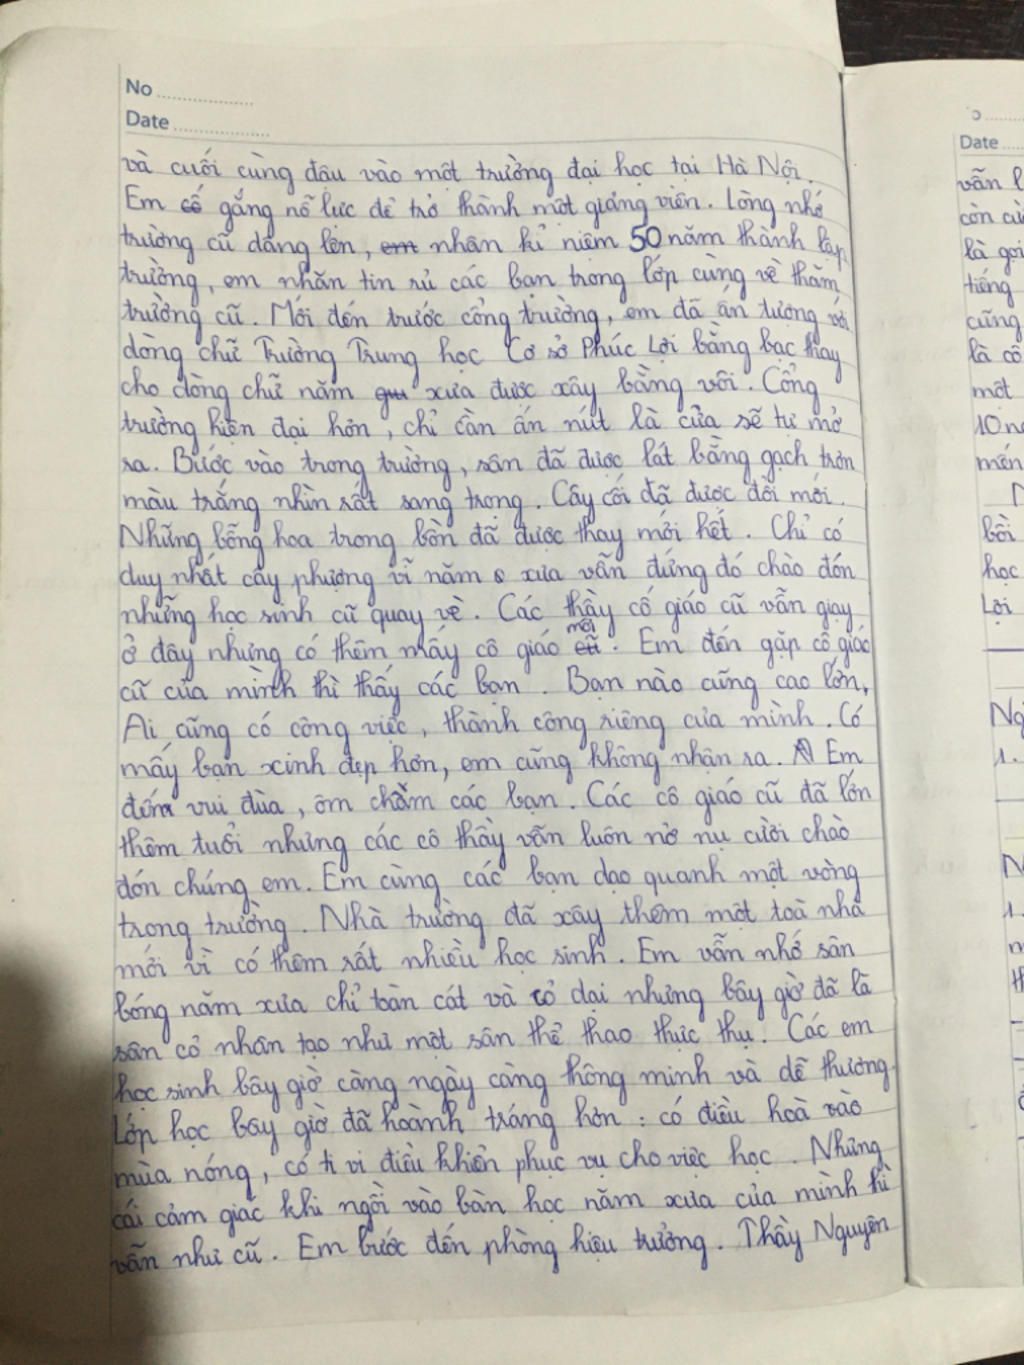 No
Date
và cuối cùng đậu vào một trường đại học tại Hà Nội.
Em cố gắng nỗ lực để trở thành một giảng viên. Lòng nhớ
trường cũ dâng lên, em nhân kỉ niệm 50 năm thành lập
trường, em nhắn tin rủ các bạn trong lớp cùng về thăm
trường cũ. Mới đến trước cổng trường, em đã ấn tượng với
dòng chữ Trường Trung học Cơ sở Phúc Lợi bằng bạc thay
cho dòng chữ năm qua xưa được xây bằng vôi. Cổng
trường hiện đại hơn, chỉ cần ấn nút là cửa sẽ tự mở
ra. Bước vào trong trường, sân đã được lát bằng gạch trơn
màu trắng nhìn rất sang trọng. Cây cối đã được đổi mới.
Những bông hoa trong bồn đã được thay mới hết. Chỉ có
duy nhất cây phượng vĩ năm xưa vẫn đứng đó chào đón
những học sinh cũ quay về. Các thầy cô giáo cũ vẫn giạy
ở đây nhưng có thêm mấy cô giáo cũ mới. Em đến gặp cô giáo
cũ của mình thì thấy các bạn. Bạn nào cũng cao lớn,
Ai cũng có công việc, thành công riêng của mình. Có
mấy bạn xinh đẹp hơn, em cũng không nhận ra. Em
đến vui đùa, ôm chầm các bạn. Các cô giáo cũ đã lớn
thêm tuổi nhưng các cô thầy vẫn luôn nở nụ cười chào
đón chúng em. Em cùng các bạn dạo quanh một vòng
trong trường. Nhà trường đã xây thêm một toà nhà
mới vì có thêm rất nhiều học sinh. Em vẫn nhớ sân
bóng năm xưa chỉ toàn cát và cỏ dại nhưng bây giờ đã là
sân cỏ nhân tạo như một sân thể thao thực thụ. Các em
học sinh bây giờ càng ngày càng thông minh và dễ thương.
Lớp học bây giờ đã hoành tráng hơn: có điều hoà vào
mùa nóng, có ti vi điều khiển phục vụ cho việc học. Nhưng
cái cảm giác khi ngồi vào bàn học năm xưa của mình thì
vẫn như cũ. Em bước đến phòng hiệu trưởng. Thầy Nguyên
Date
vẫn
còn
là gọi
tiếng
cũng
là cô
một
mến
bồi
học
Lợi
1.
1.